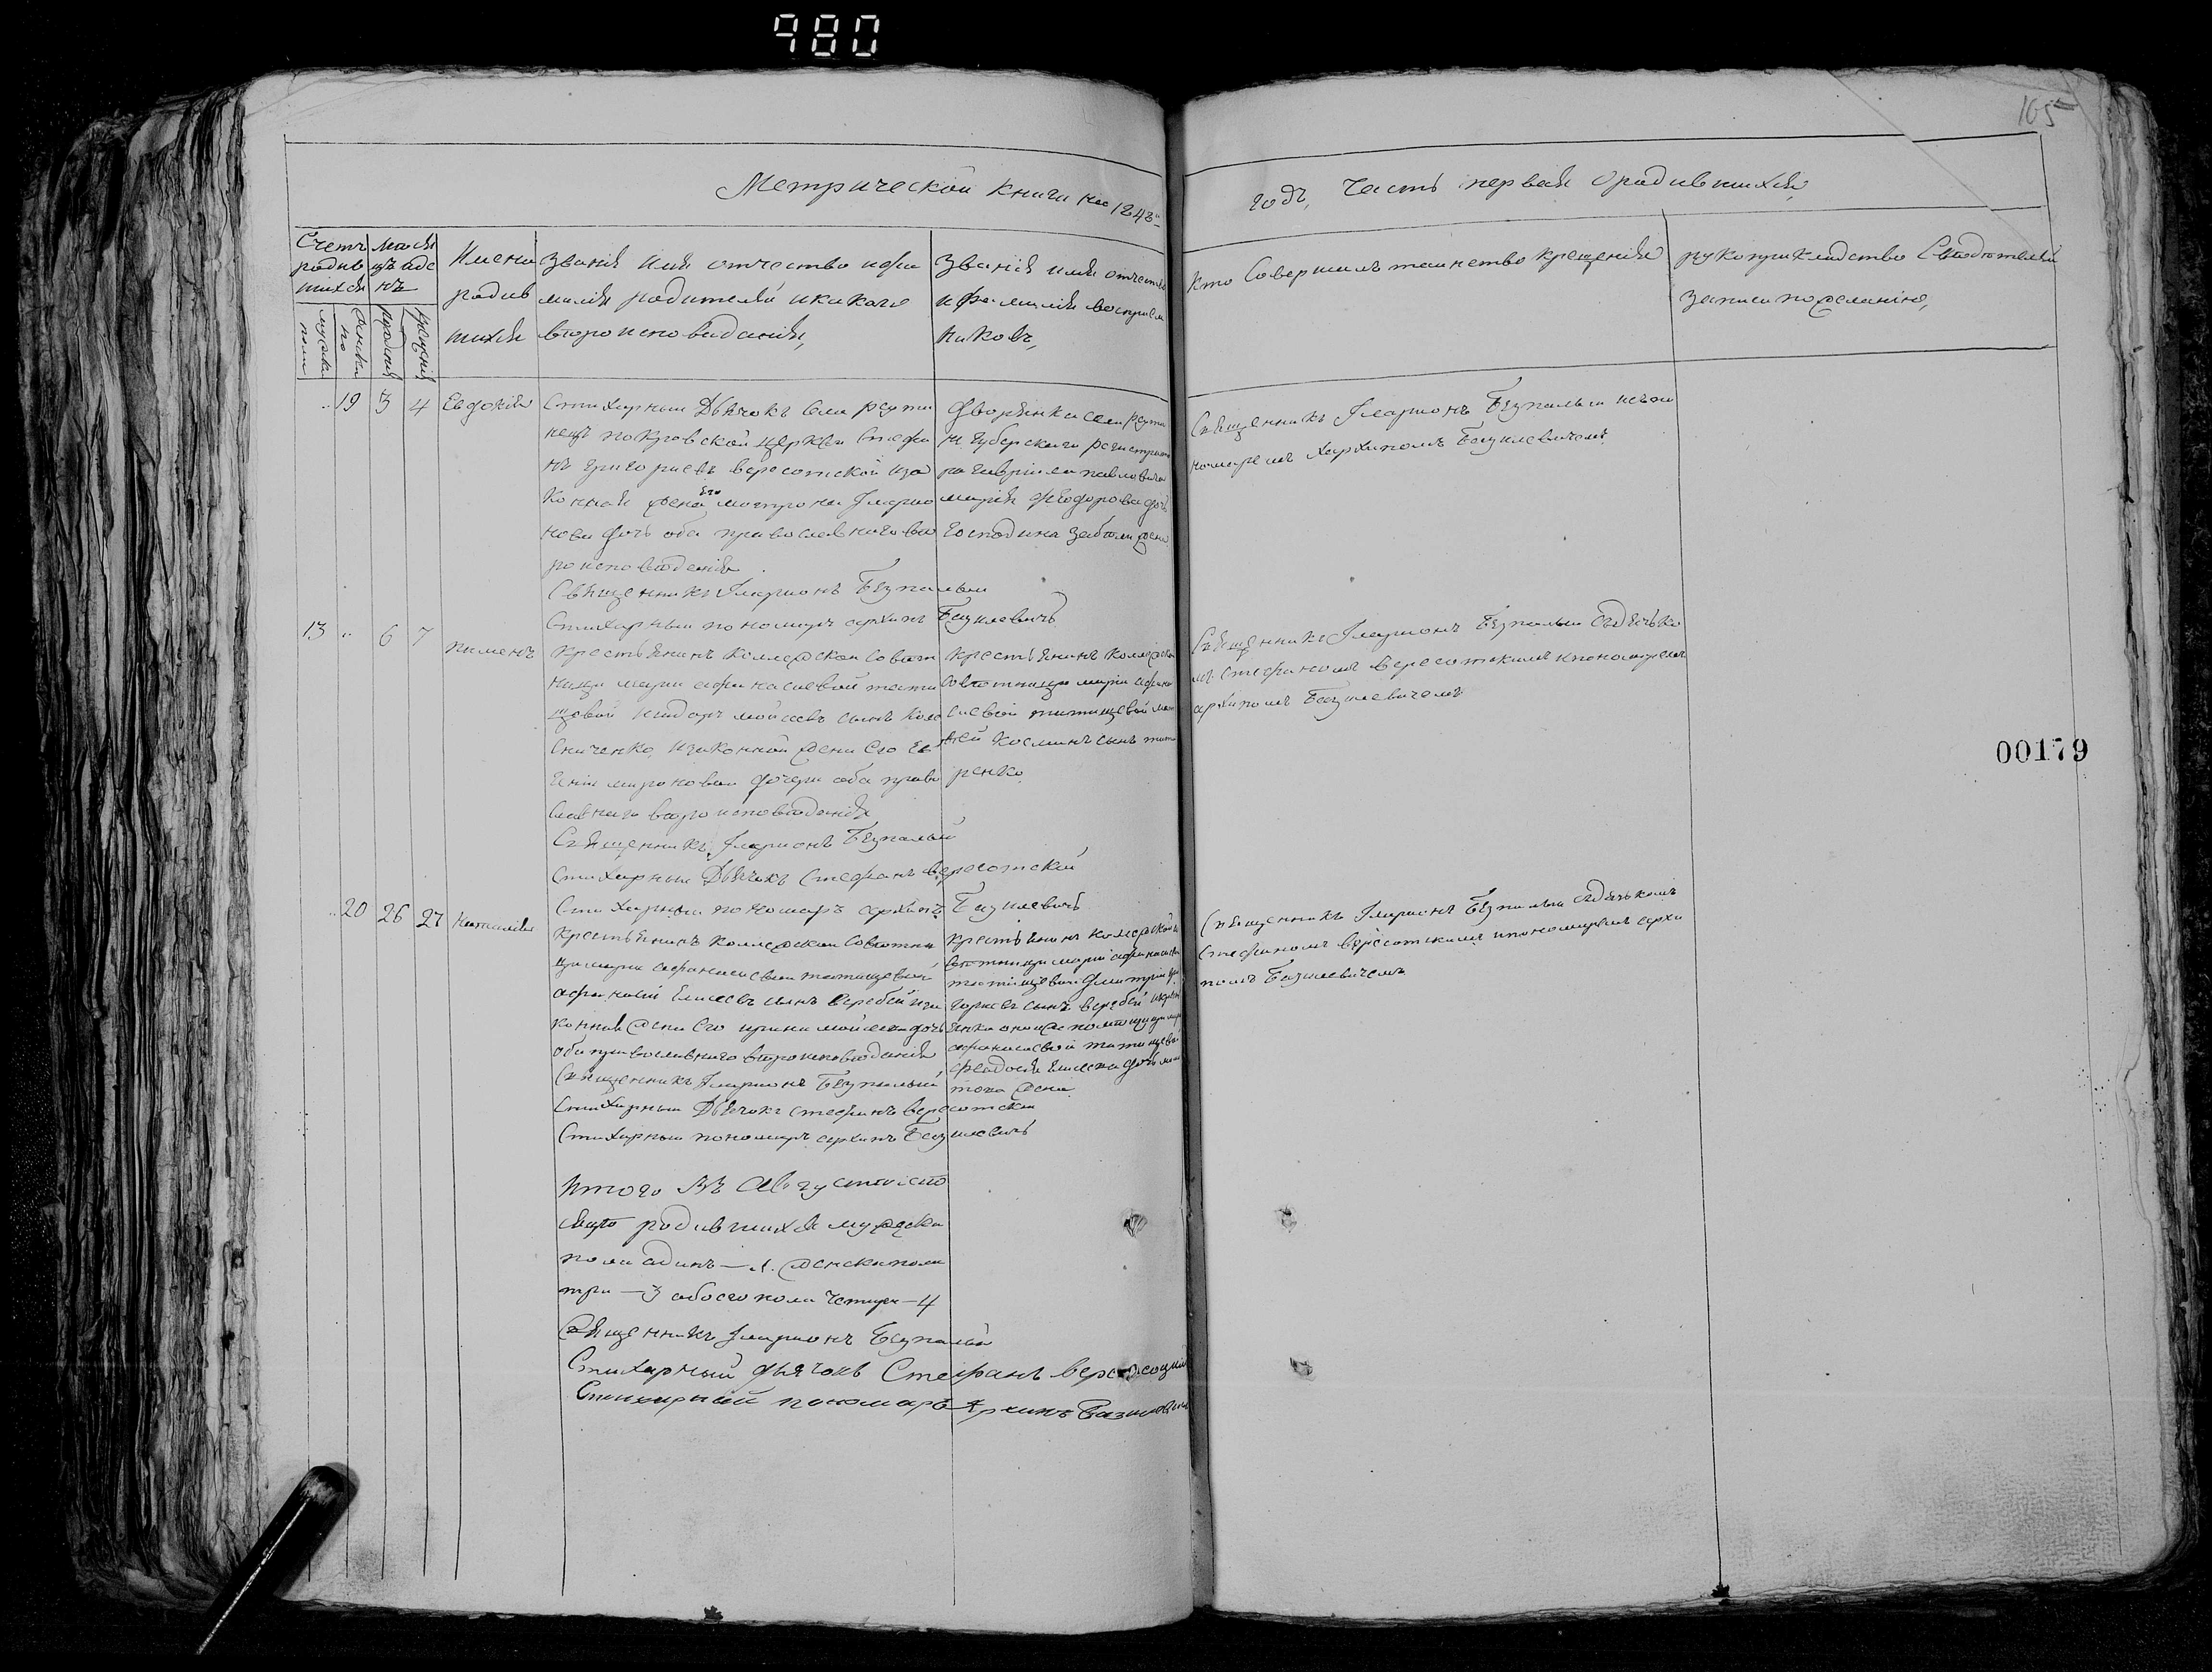 980
165
Метрической книги на 1843й
годъ, Часть первая о родившихся,
Счетъ родив шихся
мужска пола
женска по
Мися цъ иде нь
рожденія
крещенія
Имена
родив
шихся
Званія имя отчество ифа
милія родителей икакаго
вѣроисповѣданія,
Званіе имя отчество
и фамилія воспріем
никовъ,
Кто Совершалъ таинство крещенія
рукоприкладство Свидѣтелей
записи пожеланію,
19 3 4 Евдокія
Стихарный Дьячокъ села Реути
нецъ покровской церкви Стефа
нъ григорьевъ вересотской иза
конная жена его матрона Иларио
нова дочь оба православнаго вѣ
роисповѣданія
Священникъ Иларионъ Безпалый
Стихарный пономарь архипъ Базилевичъ
Дворянка села реути
нъ губерскаго регистрато
ра гавріила павловича
марія Феодорова дочь
Господина жена
Священникъ Иларионъ Безпалый испо
номаремъ Архипомъ Базилевичемъ
13 " 6 7 пименъ
Крестьянинъ Коллежской Совѣт
ницы марии афанасиевой тати
щевой исидоръ мойсеевъ сынъ
изаконной жени Его Ев
мироновой дочери оба право
славнаго вѣроисповѣданія
Священникъ Иларионъ Безпалый
Стихарный Дьячокъ Стефанъ вересотской
Стихарный пономарь архипъ Базилевичъ
крестьянинъ колежской
Совѣтницы маріи афана
сиевой татищевой мат
фей Косминъ сынъ тита
ренко
Священникъ Иларионъ Безпалый сдьячко
мъ стефаномъ вересотскимъ ипономаремъ
архипомъ Базилевичемъ
00179
20 26 27 Наталія
Крестьянинъ Коллежской Совѣтни
цы марии афанасиевой татищевой
афанасий Елисеевъ сынъ Веребей иза
конная жена Его ирина мойсеева дочь
оба православнаго вѣроисповѣданія
Священникъ Иларионъ Безпалый
Стихарный Дьячокъ стефанъ вересотской
Стихарный пономарь архипъ Базилевичъ
крестьянинъ колежской со
вѣтницы маріи афанасиев
татищевой дмитрій гри
горьевъ сынъ веребей икрест
янка оной же помѣщицы мари
афанасиевой татищевой
феодосія Елисеева дочь
жена
Священникъ Иларионъ Безпалый сдьячкомъ
Стефаномъ вересотскимъ ипономаремъ архи
помъ Базилевичемъ
Итого въ Августѣ мѣ
сяцѣ родившихся мужска
пола одинъ — 1. женска пола
три — 3 обоего пола четыри — 4
Священникъ Иларионъ Безпалый
Стихарный дьячокъ Стефанъ вересоцкій
Стихарный пономарь Архипъ Базилевичъ